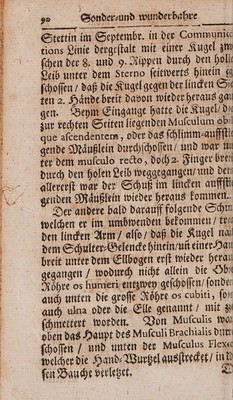 90 Sonder-und wunderbahre
Stettin im Septembr. in der Communica
tions Linie dergestalt mit einer Kugel zw
schen der 8. und 9. Rippen durch den holen
Leib unter dem Sterno seitwerts hinein g
schossen / daß die Kugel gegen der lincken Sei
ten 2. Hände breit davon wieder heraus gan
gen. Beym Eingange hatte die Kugel / die
zur rechten Seiten liegenden Musculum obli
que ascendentem, oder das schlimm-auffstei
gende Mäußlein durchschossen / und war un
ter dem musculo recto, doch 2. Finger breit
durch den holen Leib weggegangen / und dem
allererst war der Schuß im lincken auffsti
genden Mäußlein wieder heraus kommen.
Der andere bald darauff folgende Schu
welchen er im umbwenden bekommen / tra
den lincken Arm / also / daß die Kugel nah
dem Schulter-Gelencke hinein / uñ einer Han
breit unter dem Ellbogen erst wieder heraus
gegangen / wodurch nicht allein die Ober
Röhre os humeri entzwey geschossen / sondern
auch unten die grosse Röhre os cubiti, son
auch ulna oder die Elle genannt / mit zer
schmettert worden. Von Musculis war
oben das Haupt des Musculi Brachialis durch
schossen / und unten der Musculus Flexor
welcher die Hand-Wurtzel ausstrecket / in de
sen Bauche verletzet.